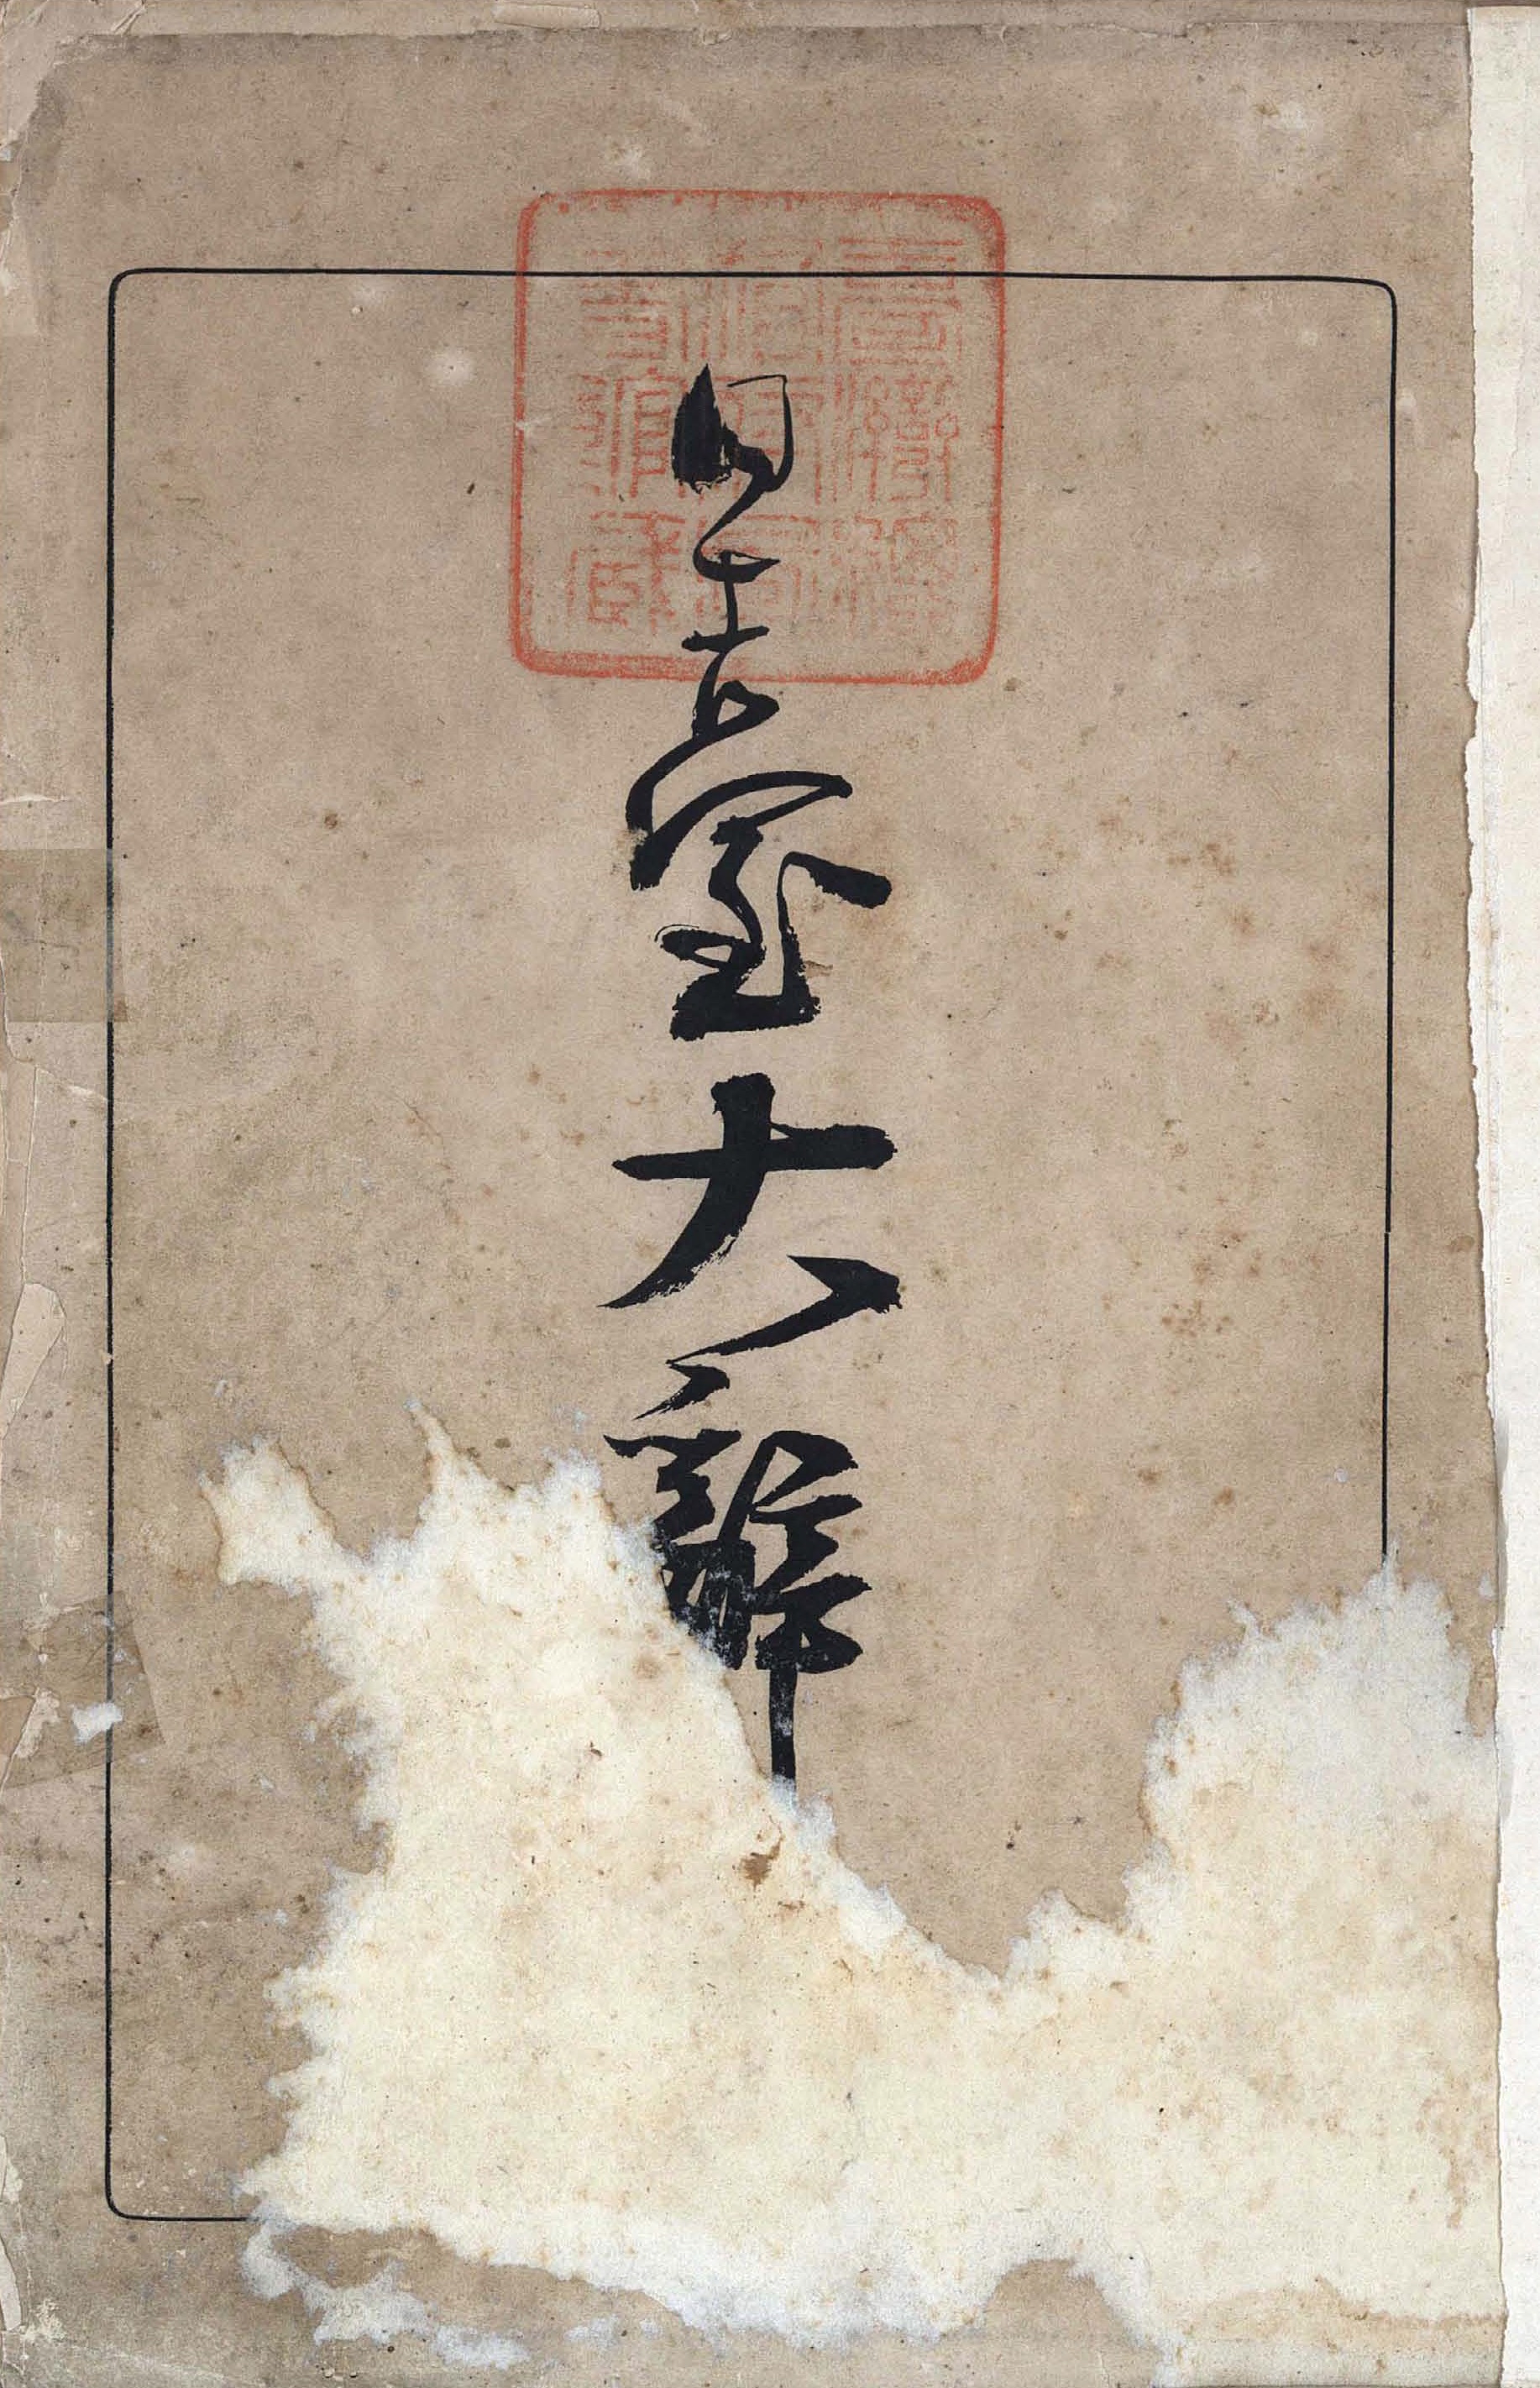 日臺大辭
臺灣總
督府圖
書館藏